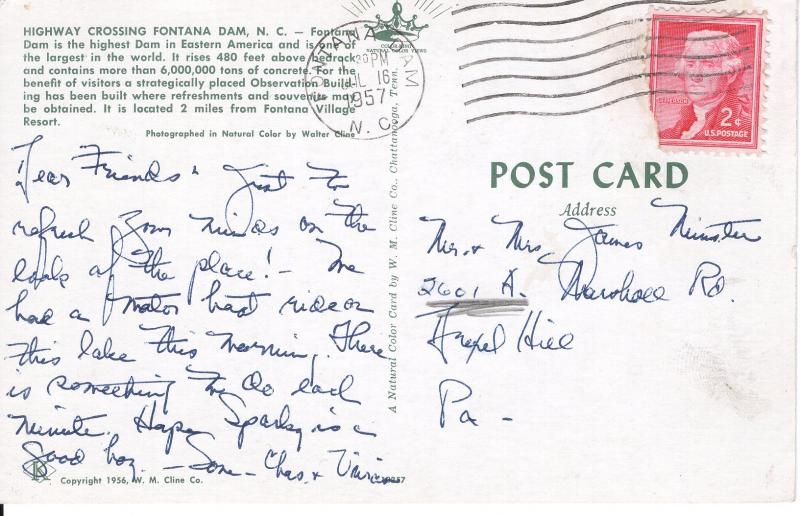 HIGHWAY CROSSING FONTANA DAM, N. C. — Fontana
Dam is the highest Dam in Eastern America and is one of
the largest in the world. It rises 480 feet above bedrock
and contains more than 6,000,000 tons of concrete. For the
benefit of visitors a strategically placed Observation Build-
ing has been built where refreshments and souvenirs may
be obtained. It is located 2 miles from Fontana Village
Resort.
Photographed in Natural Color by Walter Cline
COLOR-KING
NATURAL COLOR VIEWS
FONTANA DAM
PM
JUL 16
1957
N. C.
2¢
U.S. POSTAGE
Dear Friends - Just to
refresh your minds on the
looks of the place! - We
had a motor boat ride on
this lake this morning. There
is something to do each
minute. Hope Sparky is a
good boy. - Love - Chas. &
A Natural Color Card by W. M. Cline Co., Chattanooga, Tenn.
POST CARD
Address
Mr. & Mrs. James
2601 A. Marshall Rd.
Drexel Hill
Pa -
Copyright 1956, W. M. Cline Co.